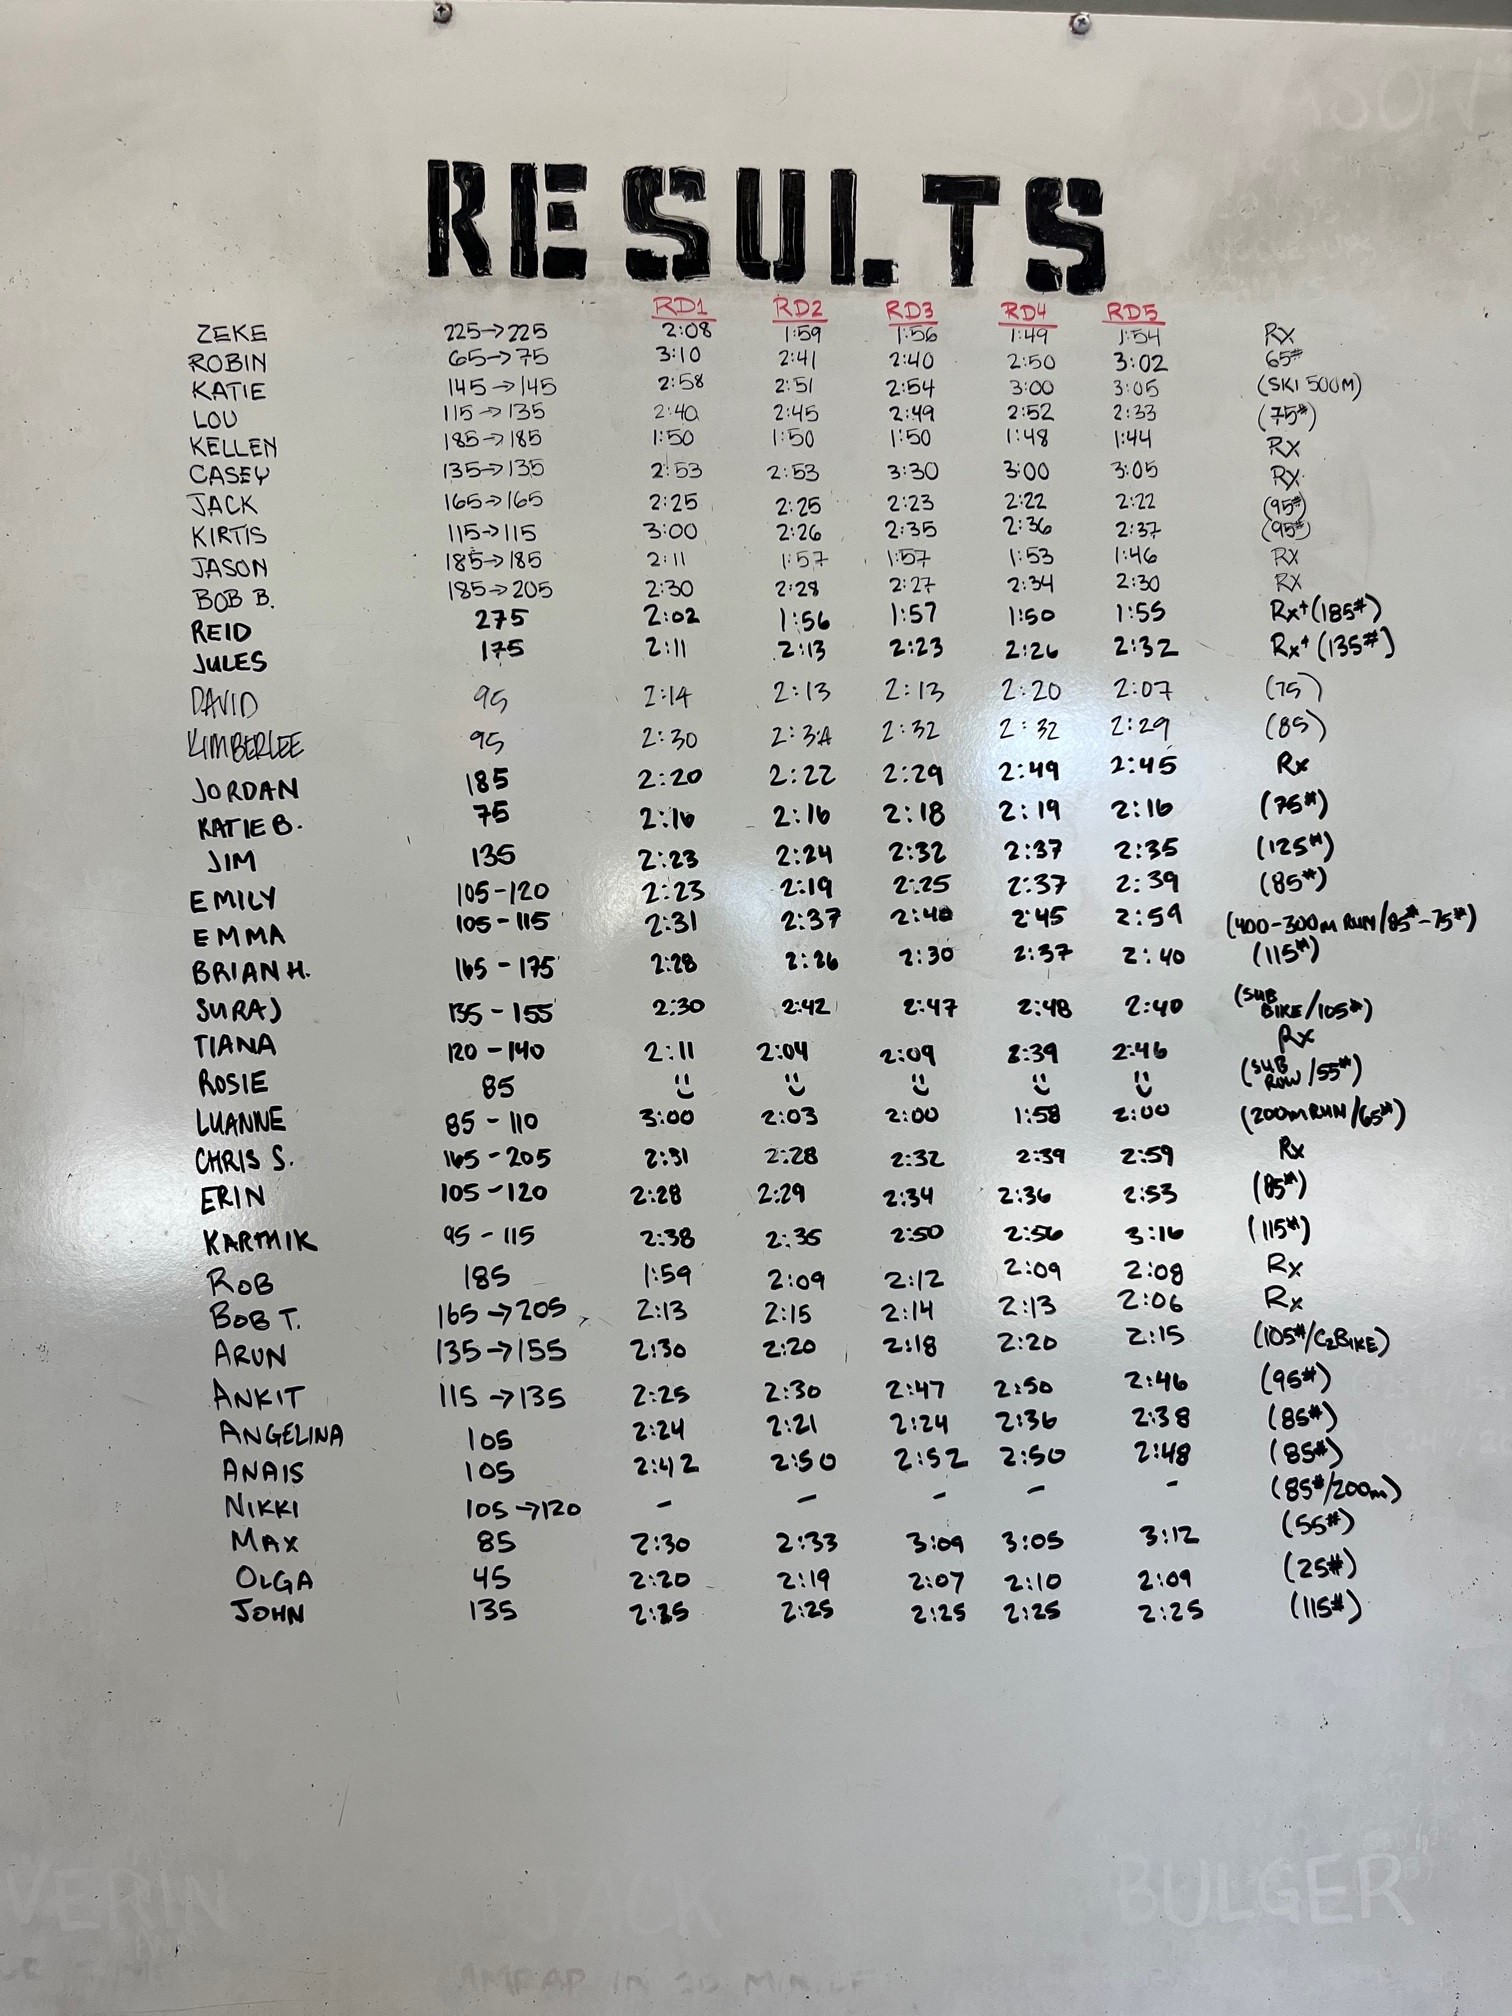 RESULTS
RD1 RD2 RD3 RD4 RD5
ZEKE 225→225 2:08 1:59 1:56 1:49 1:54 RX
ROBIN 65→75 3:10 2:41 2:40 2:50 3:02 65#
KATIE 145→145 2:58 2:51 2:54 3:00 3:05 (SKI 500M)
LOU 115→135 2:40 2:45 2:49 2:52 2:33 (75#)
KELLEN 185→185 1:50 1:50 1:50 1:48 1:44 RX
CASEY 135→135 2:53 2:53 3:30 3:00 3:05 RX
JACK 165→165 2:25 2:25 2:23 2:22 2:22 (95#)
KIRTIS 115→115 3:00 2:26 2:35 2:36 2:37 (95#)
JASON 185→185 2:11 1:57 1:57 1:53 1:46 RX
BOB B. 185→205 2:30 2:28 2:27 2:34 2:30 RX
REID 275 2:02 1:56 1:57 1:50 1:55 Rx+(185#)
JULES 175 2:11 2:13 2:23 2:26 2:32 Rx+(135#)
DAVID 95 2:14 2:13 2:13 2:20 2:07 (75)
KIMBERLEE 95 2:30 2:32 2:32 2:29 (85)
JORDAN 185 2:20 2:22 2:29 2:49 2:45 Rx
KATIE B. 75 2:16 2:16 2:18 2:19 2:16 (75#)
JIM 135 2:23 2:24 2:32 2:37 2:35 (125#)
EMILY 105-120 2:23 2:19 2:25 2:37 2:39 (85#)
EMMA 105-115 2:31 2:37 2:40 2:45 2:59 (400-300m RUN/85#-75#)
BRIAN H. 165-175 2:28 2:26 2:30 2:37 2:40 (115#)
SURAJ 135-155 2:30 2:42 2:47 2:48 2:40 (SUB BIKE/105#)
TIANA 120-140 2:11 2:04 2:09 2:39 2:46 Rx
ROSIE 85 (SUB ROW/55#)
LUANNE 85-110 3:00 2:03 2:00 1:58 2:00 (200m RUN/65#)
CHRIS S. 165-205 2:31 2:28 2:32 2:39 2:59 Rx
ERIN 105-120 2:28 2:29 2:34 2:36 2:53 (85#)
KARTHIK 95-115 2:38 2:35 2:50 2:56 3:16 (115#)
ROB 185 1:59 2:09 2:12 2:09 2:08 Rx
BOB T. 165→205 2:13 2:15 2:14 2:13 2:06 Rx
ARUN 135→155 2:30 2:20 2:18 2:20 2:15 (105#/C2BIKE)
ANKIT 115→135 2:25 2:30 2:47 2:50 2:46 (95#)
ANGELINA 105 2:24 2:21 2:24 2:36 2:38 (85#)
ANAIS 105 2:42 2:50 2:52 2:50 2:48 (85#)
NIKKI 105→120 - - - - - (85#/200m)
MAX 85 2:30 2:33 3:09 3:05 3:12 (55#)
OLGA 45 2:20 2:19 2:07 2:10 2:09 (25#)
JOHN 135 2:25 2:25 2:25 2:25 (115#)
VERIN JACK BULGER